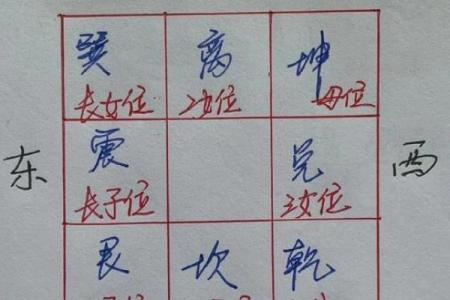 巽 离 坤
长女位 2女位 母位
东 震 兑 西
长子位 3女位
艮 坎 乾